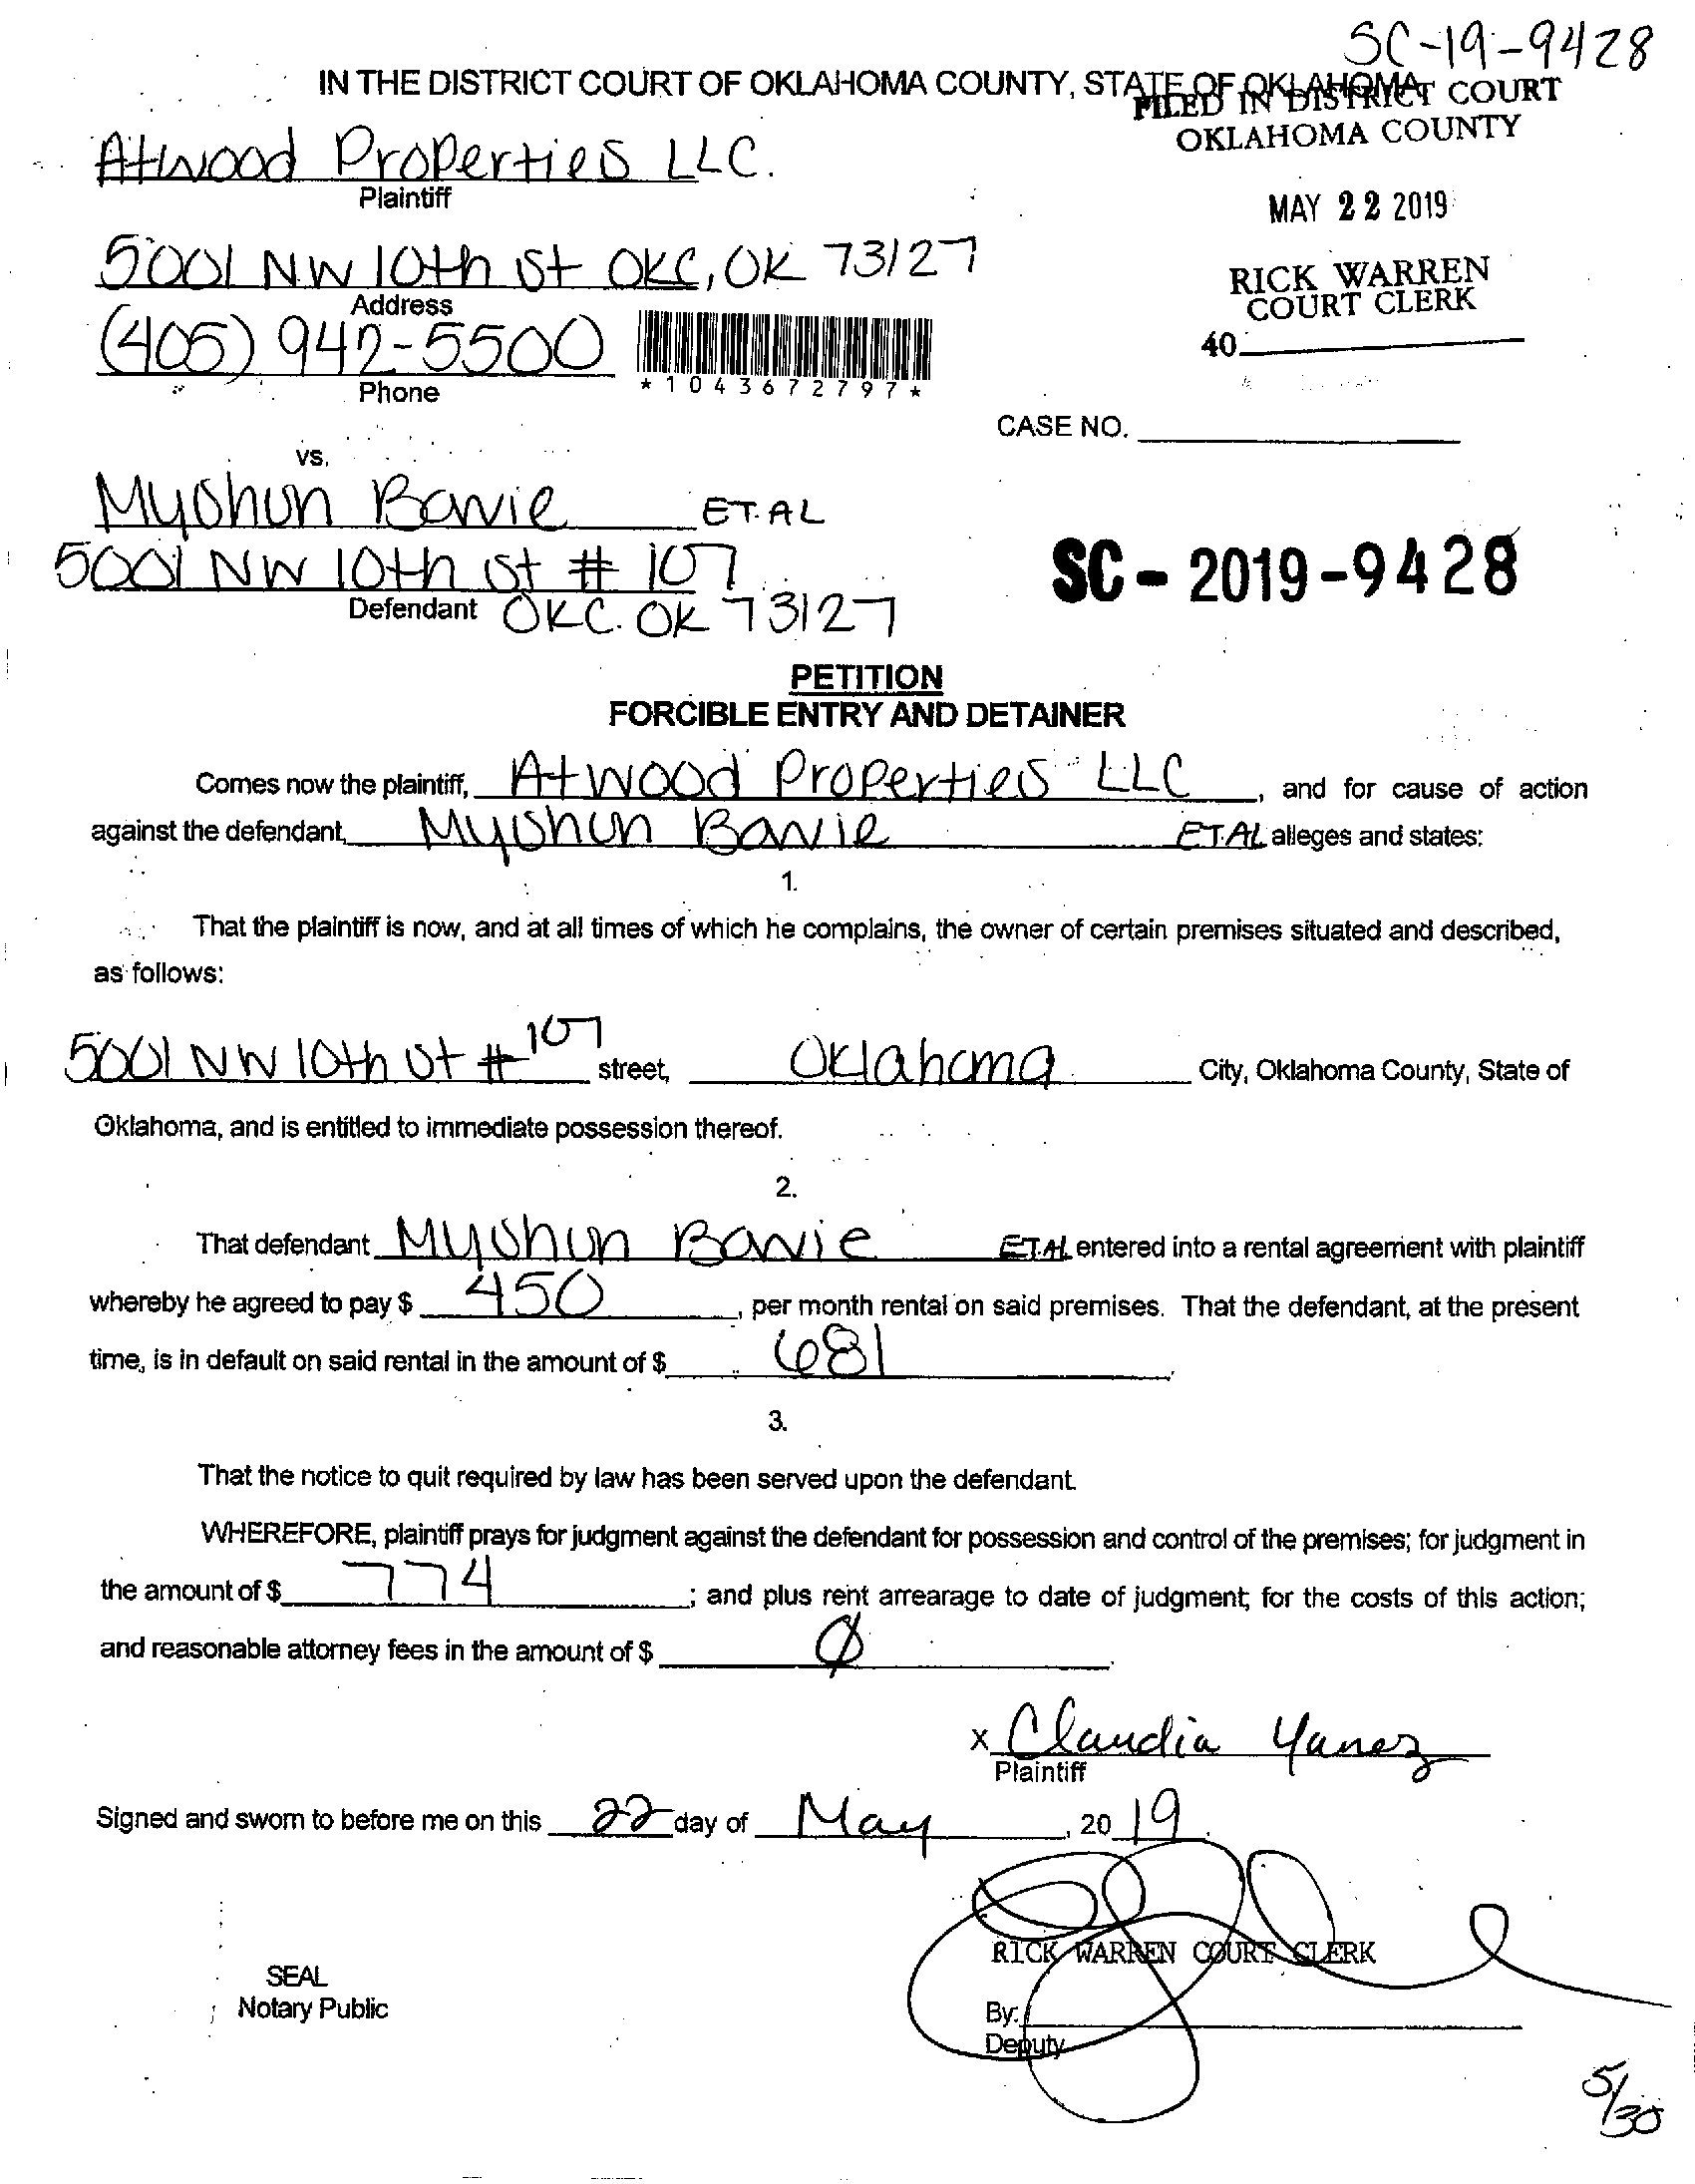 SC-19-9428
IN THE DISTRICT COURT OF OKLAHOMA COUNTY, STATE OF OKLAHOMA
FILED IN DISTRICT COURT
OKLAHOMA COUNTY
Atwood Properties LLC.
Plaintiff
MAY 22 2019
5001 NW 10th St OKC, OK 73127
Address
RICK WARREN
COURT CLERK
(405) 942-5500
Phone
*1043672797*
40
CASE NO.
vs.
Myshun Bowie ET. AL
5001 NW 10th St # 107
Defendant OKC. OK 73127
SC - 2019 - 9428
PETITION
FORCIBLE ENTRY AND DETAINER
Comes now the plaintiff, Atwood Properties LLC, and for cause of action
against the defendant, Myshun Bowie ET.AL alleges and states:
1.
That the plaintiff is now, and at all times of which he complains, the owner of certain premises situated and described,
as follows:
5001 NW 10th St # 107 street, Oklahoma City, Oklahoma County, State of
Oklahoma, and is entitled to immediate possession thereof.
2.
That defendant Myshun Bowie ET.AL entered into a rental agreement with plaintiff
whereby he agreed to pay $ 450, per month rental on said premises. That the defendant, at the present
time, is in default on said rental in the amount of $ 681.
3.
That the notice to quit required by law has been served upon the defendant.
WHEREFORE, plaintiff prays for judgment against the defendant for possession and control of the premises; for judgment in
the amount of $ 774; and plus rent arrearage to date of judgment; for the costs of this action;
and reasonable attorney fees in the amount of $ 0.
x Claudia Yanez
Plaintiff
Signed and sworn to before me on this 22 day of May, 2019.
RICK WARREN COURT CLERK
SEAL
Notary Public
By:
Deputy
5/30